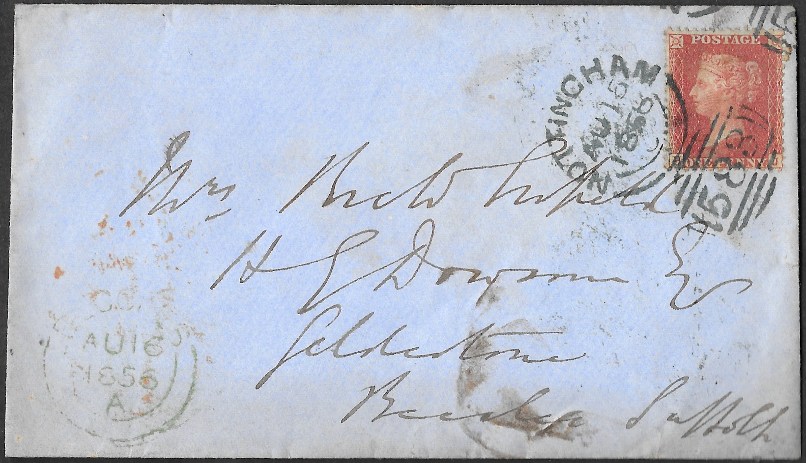 POSTAGE
ONE PENNY
NOTTINGHAM
AU 15
1856
583
Mrs
H G Dowson Esq
Geldestone
Beccles Suffolk
AU 16
1856
A